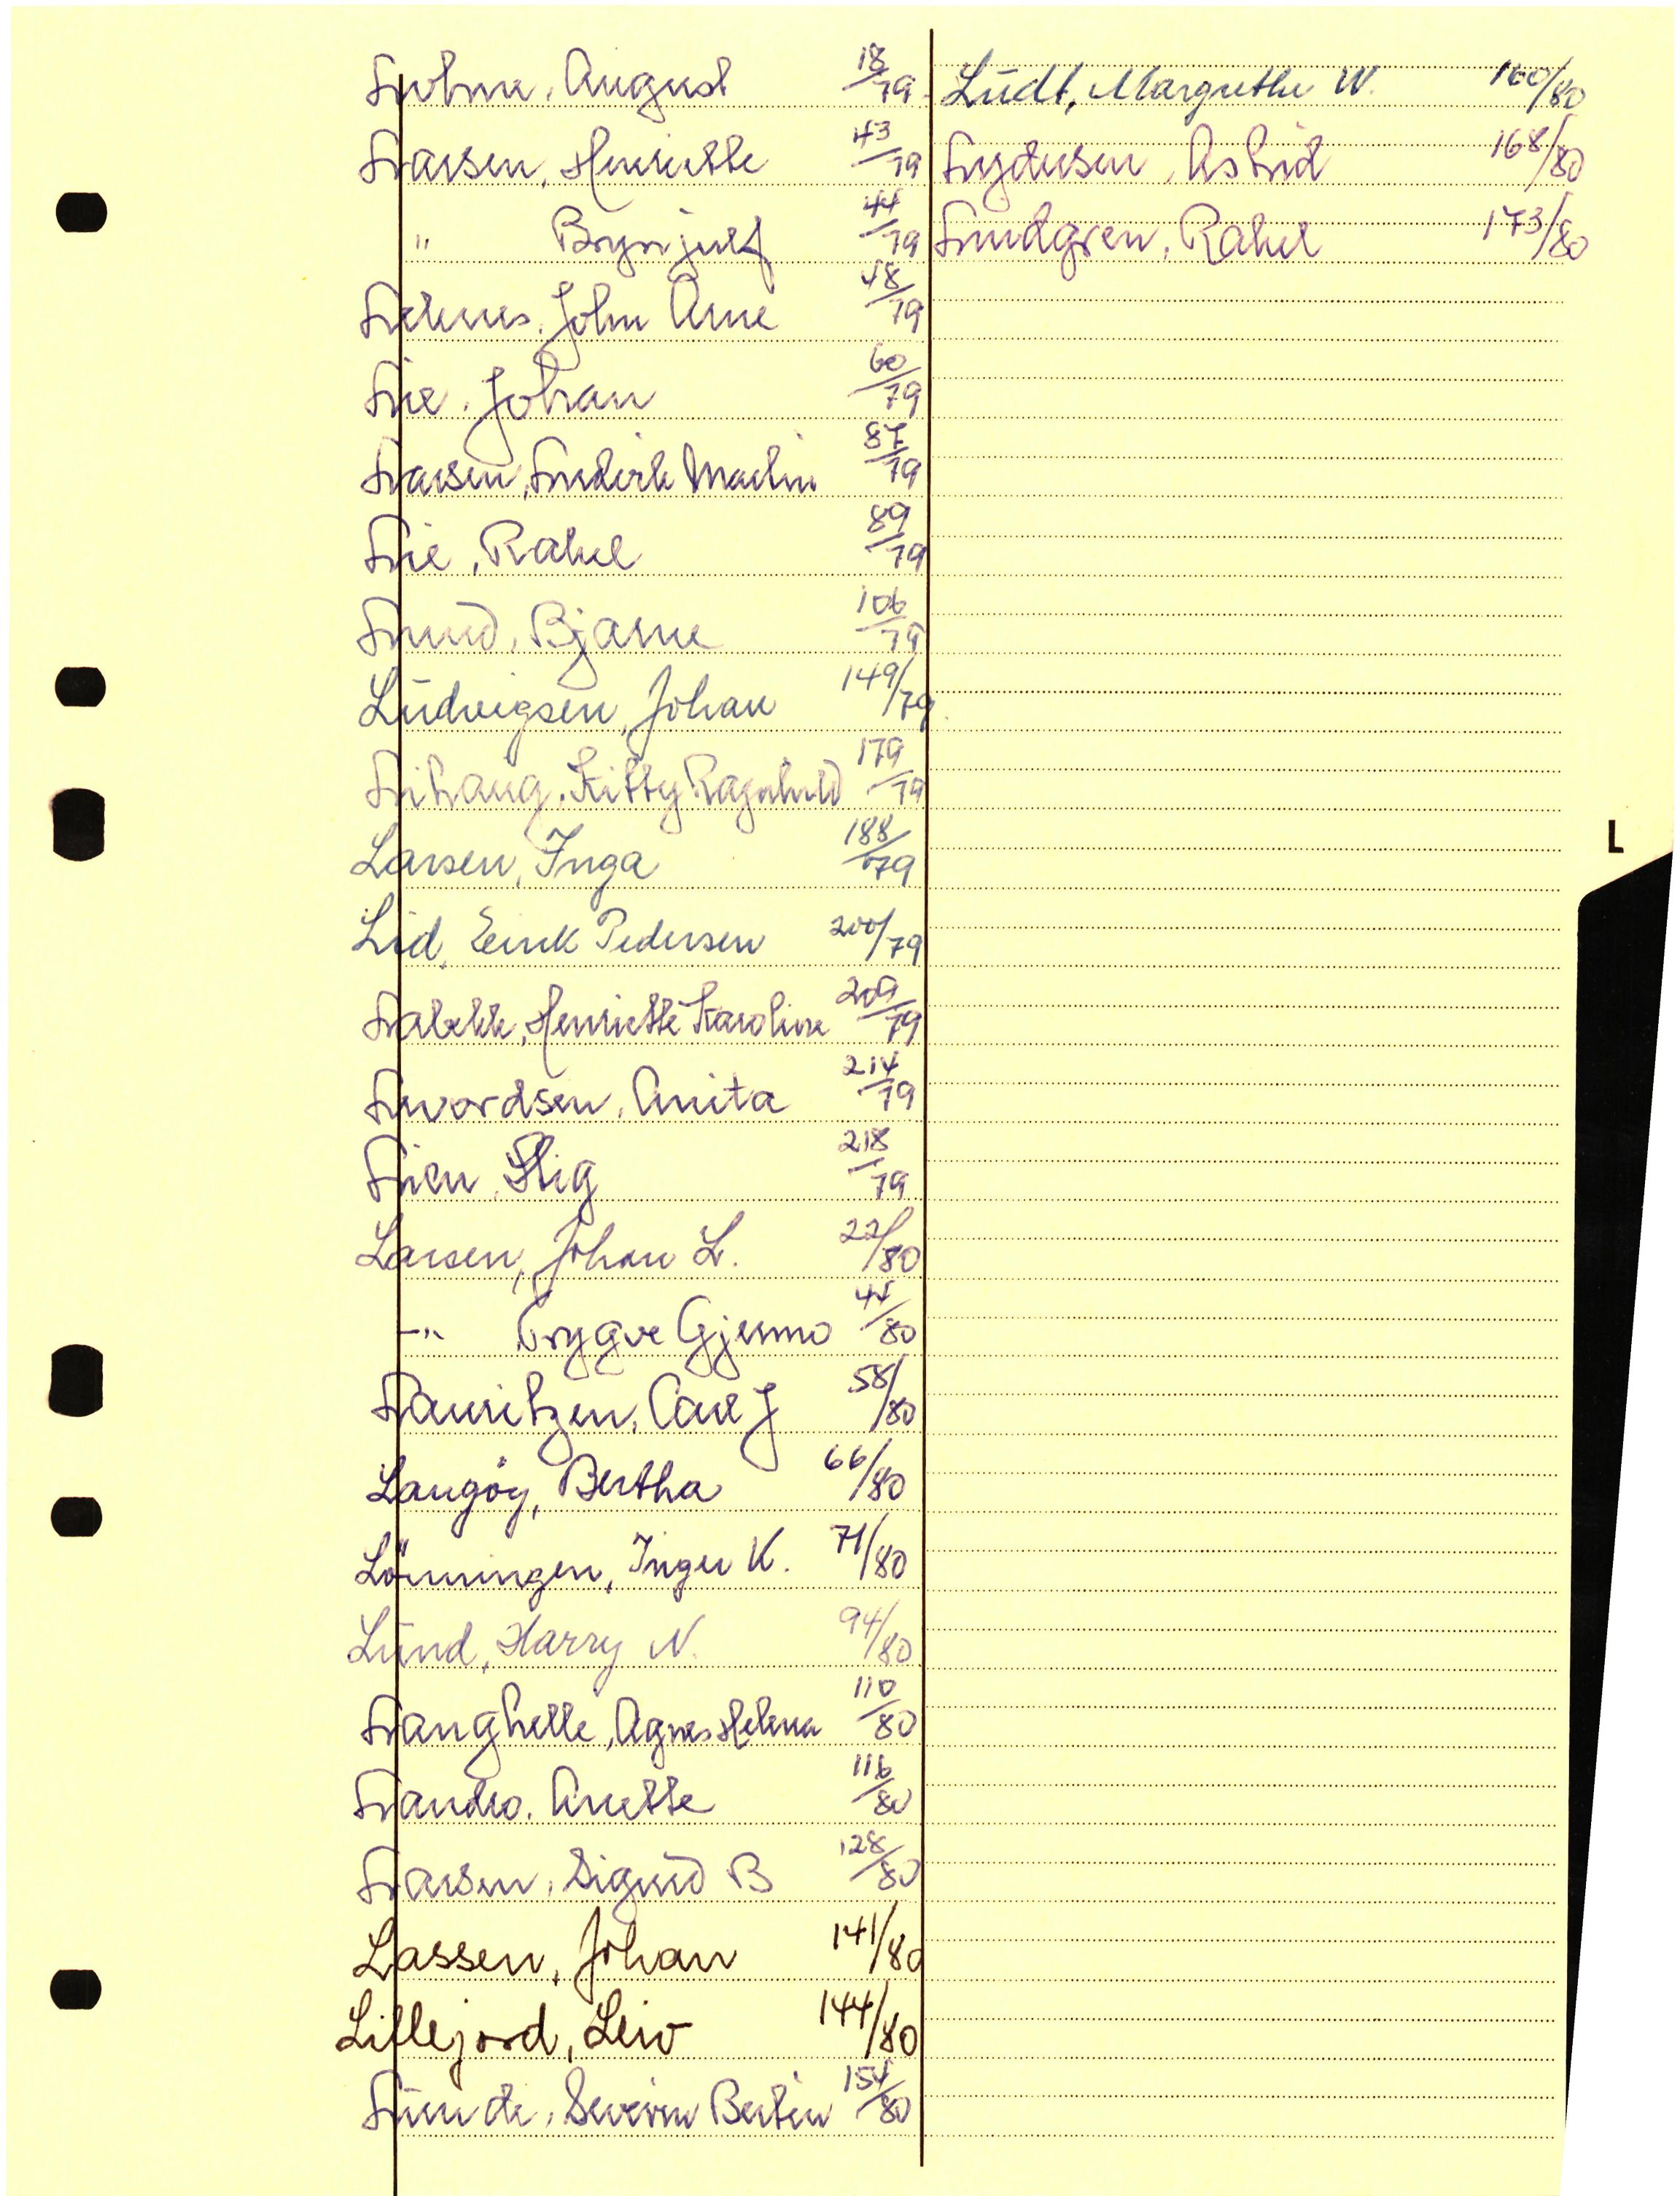 Lohne, August 18/79
Larsen, Henriette 43/79
" Brynjulf 44/79
John Arne 48/79
Lie, Johan 60/79
Larsen, Martin 87/79
Lie, Rakel 89/79
Lund, Bjarne 106/79
Ludvigsen, Johan 149/79
Lihaug, Kitty Ragnhild 179/79
Larsen, Inga 188/79
Lid, Eirik Pedersen 200/79
Henriette Karoline 209/79
Levordsen, Anita 214/79
Lien, Stig 218/79
Larsen, Johan L. 22/80
-"- Trygve Gjermo 44/80
Lauritzen, Carl J 58/80
Langöy, Bertha 66/80
Lönningen, Inger K. 71/80
Lund, Harry N. 94/80
Langhelle, Agnes Helena 110/80
Landro, Anette 116/80
Larsen, Sigurd B 128/80
Lassen, Johan 141/80
Lillejord, Leiv 144/80
Lunde, Severin Bertin 154/80
Lüdt, Margrethe W. 160/80
Lydersen, Astrid 168/80
Lundgren, Rakel 173/80
L